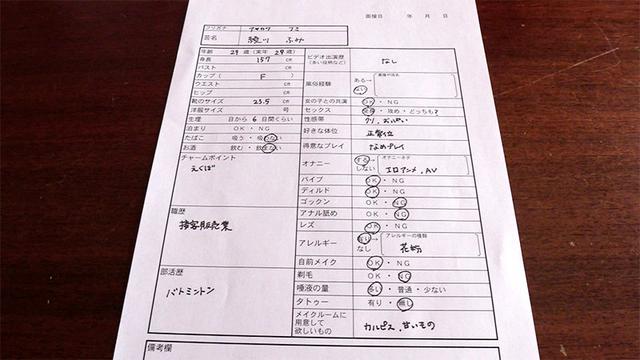 面接日　　年　月　日
フリガナ
芸名　綾川　ふみ
年齢　29歳（実年29歳）
身長　157 cm
バスト　cm
カップ（　F　）
ウエスト　cm
ヒップ　cm
靴のサイズ　23.5　cm
洋服サイズ　号
生理　日から6日間くらい
泊まり　OK・NG
たばこ　吸う・吸わない
お酒　飲む・飲まない
チャームポイント
えくぼ
職歴
接客販売業
部活歴
バトミントン
ビデオ出演歴　なし
風俗経験　ある→
ない
女の子との共演　OK・NG
セックス　受身・攻め・どっちも？
性感帯　クリ、おっぱい
好きな体位　正常位
得意なプレイ　なめプレイ
オナニー　する→　オナニーネタ
しない　エロアニメ、AV
バイブ　OK・NG
ディルド　OK・NG
ゴックン　OK・NG
アナル舐め　OK・NG
レズ　OK・NG
アレルギー　ある→　アレルギーの種類
なし　花粉
自前メイク　OK・NG
剃毛　OK・NG
唾液の量　多い・普通・少ない
タトゥー　有り・無し
メイクルームに
用意して　カルピス、甘いもの
欲しいもの
備考欄